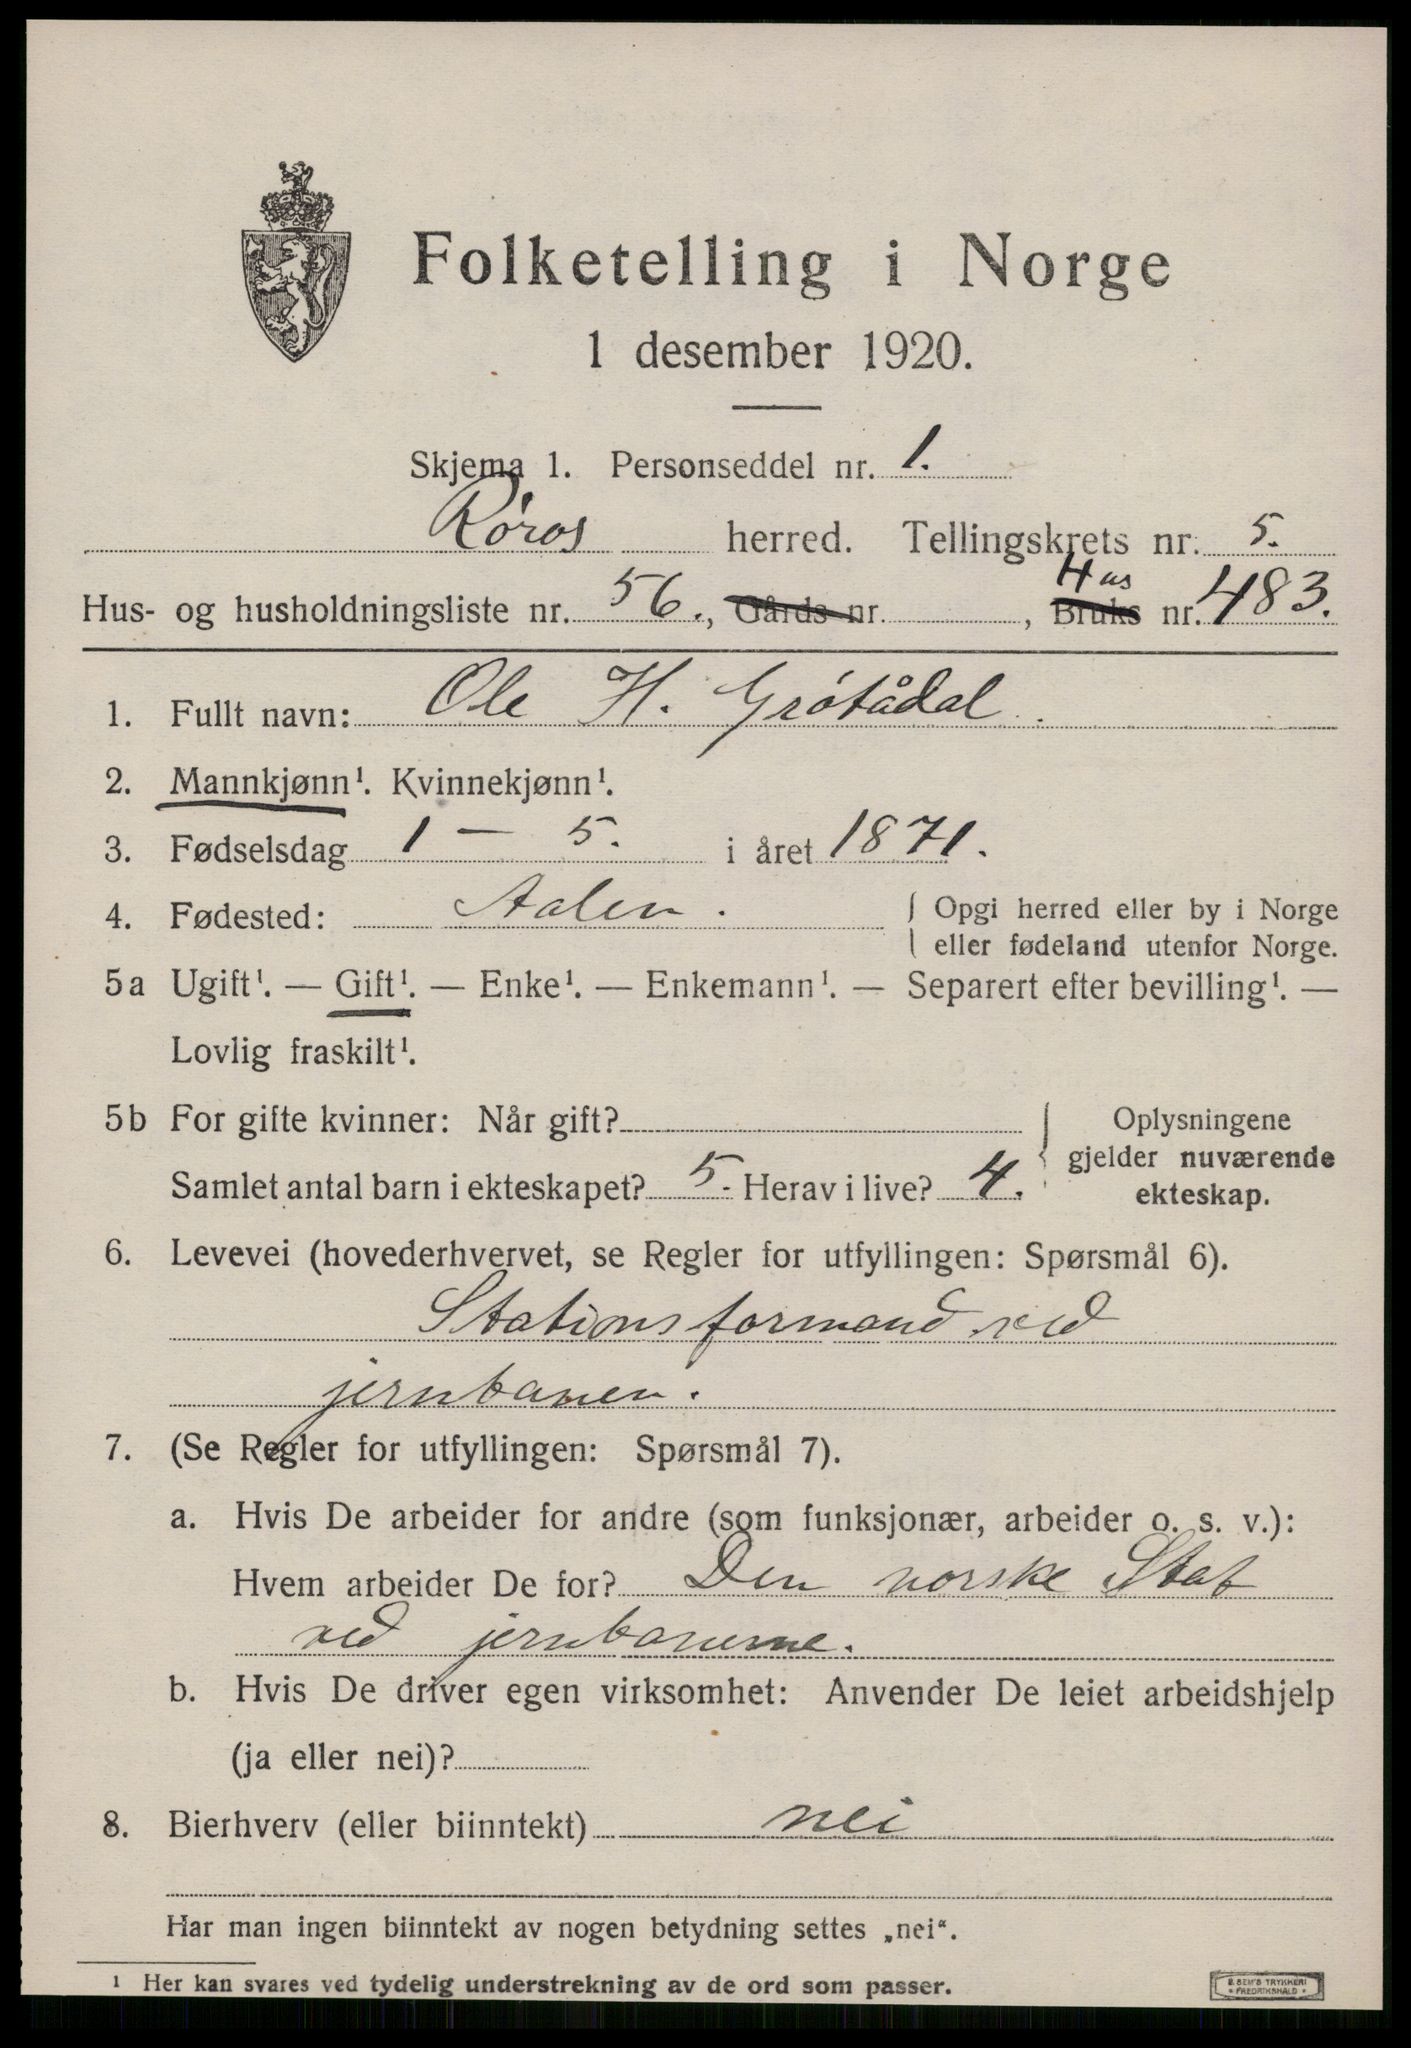 Folketelling i Norge
1 desember 1920.
Skjema 1. Personseddel nr. 1.
Røros herred. Tellingskrets nr. 5.
Hus
Hus- og husholdningsliste nr. 56., Gårds nr. , Bruks nr. 483.
1. Fullt navn: Ole H. Grótådal.
2. Mannkjønn¹. Kvinnekjønn¹.
3. Fødselsdag 1 – 5. i året 1871.
4. Fødested: Aalen. { Opgi herred eller by i Norge
eller fødeland utenfor Norge.
5a Ugift¹. — Gift¹. — Enke¹. — Enkemann¹. — Separert efter bevilling¹. —
Lovlig fraskilt¹.
5b For gifte kvinner: Når gift? { Oplysningene
gjelder nuværende
Samlet antal barn i ekteskapet? 5. Herav i live? 4. ekteskap.
6. Levevei (hovederhvervet, se Regler for utfyllingen: Spørsmål 6).
Stationsformand ved
jernbanen.
7. (Se Regler for utfyllingen: Spørsmål 7).
a. Hvis De arbeider for andre (som funksjonær, arbeider o. s. v.):
Hvem arbeider De for? Den norske Stat
ved jernbanerne.
b. Hvis De driver egen virksomhet: Anvender De leiet arbeidshjelp
(ja eller nei)?
8. Bierhverv (eller biinntekt) nei
Har man ingen biinntekt av nogen betydning settes „nei“.
¹ Her kan svares ved tydelig understrekning av de ord som passer.
E SEM'S TRYKKERI
* FREDRIKSHALD *